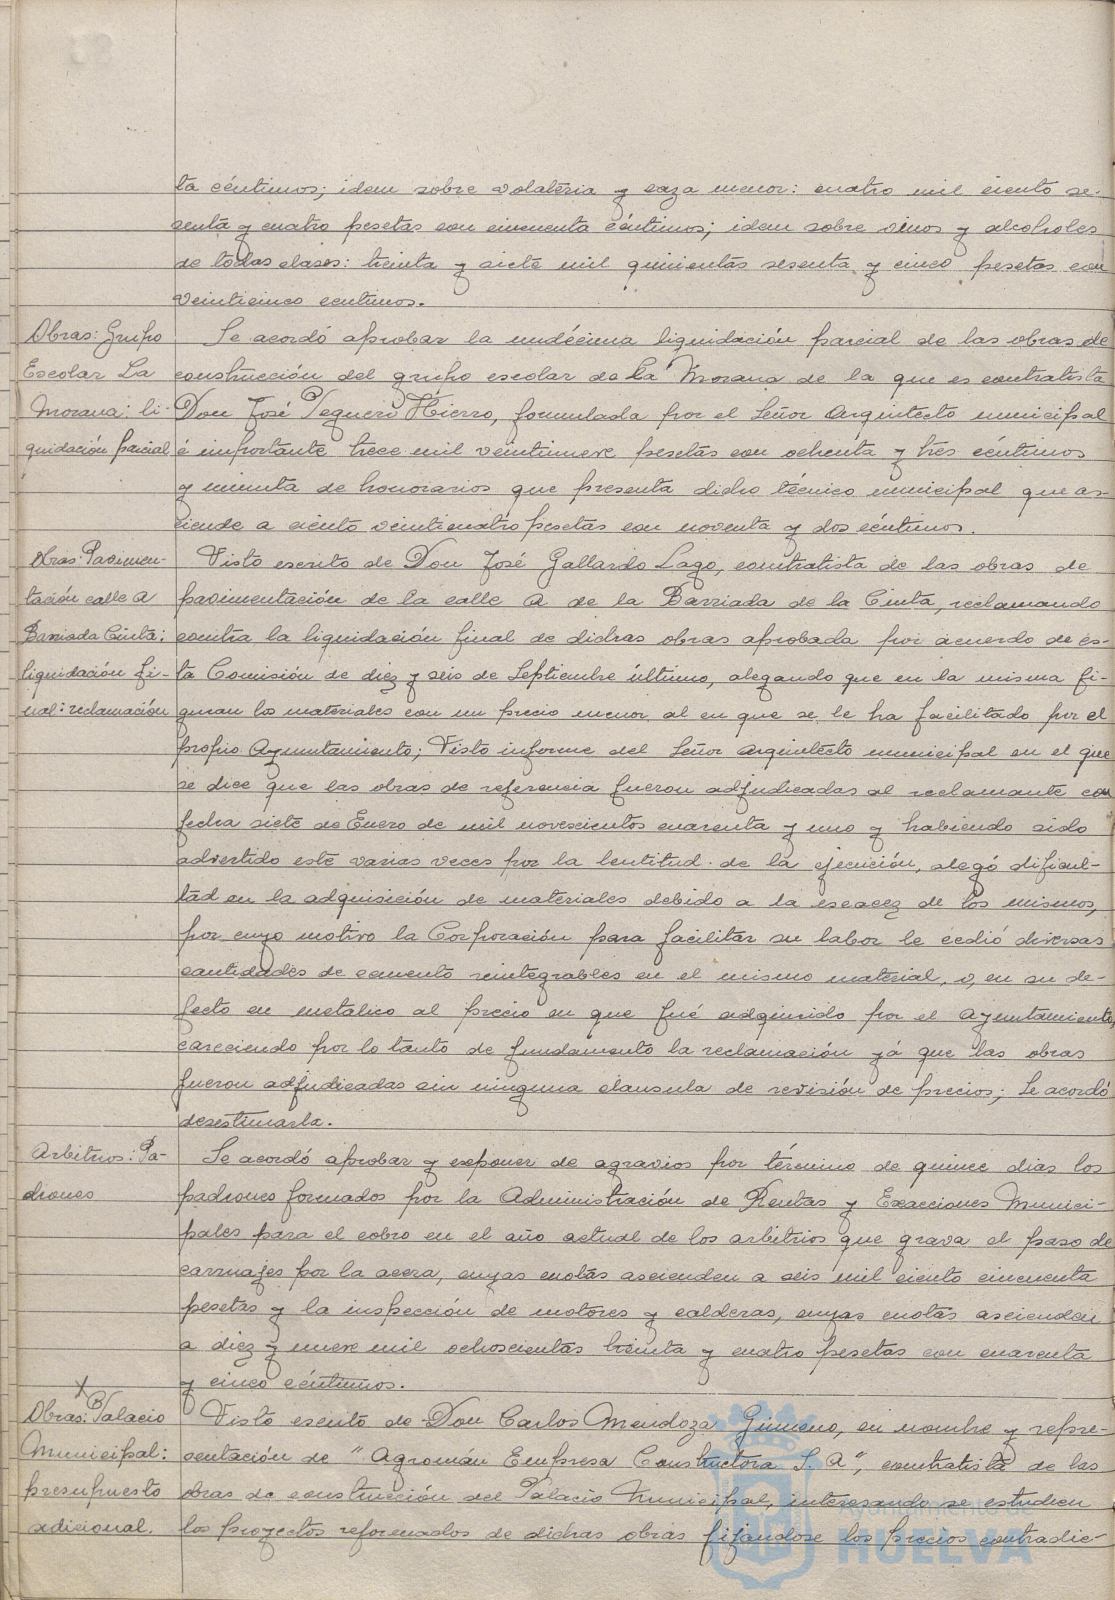 ta céntimos; idem sobre volateria y caza menor: cuatro mil ciento se-
senta y cuatro pesetas con cincuenta céntimos; idem sobre vinos y alcoholes
de todas clases: treinta y siete mil quinientas sesenta y cinco pesetas con
veinticinco centimos.
Obras: Grupo
Escolar La
Morana: li-
quidación parcial
Se acordó aprobar la undécima liquidación parcial de las obras de
construcción del grupo escolar de La Morana de la que es contratista
Don José Pequeri Hierro, formulada por el Señor Arquitecto municipal
é importante trece mil veintinueve pesetas con ochenta y tres céntimos
y minuta de honorarios que presenta dicho técnico municipal que as-
ciende a ciento veinticuatro pesetas con noventa y dos céntimos.
Obras: Pavimen-
tación calle A
Barriada Cinta:
liquidación fi-
nal: reclamación
Visto escrito de Don José Gallardo Lago, contratista de las obras de
pavimentación de la calle A de la Barriada de la Cinta, reclamando
contra la liquidación final de dichas obras aprobada por acuerdo de es-
ta Comisión de diez y seis de Septiembre último, alegando que en la misma fi-
guran los materiales con un precio menor al en que se le ha facilitado por el
propio Ayuntamiento; Visto informe del Señor Arquitecto municipal en el que
se dice que las obras de referencia fueron adjudicadas al reclamante con
fecha siete de Enero de mil novescientos cuarenta y uno y habiendo sido
advertido este varias veces por la lentitud de la ejecución, alegó dificul-
tad en la adquisición de materiales debido a la escacez de los mismos,
por cuyo motivo la Corporación para facilitar su labor le cedió diversas
cantidades de cemento reintegrables en el mismo material, o, en su de-
fecto en metalico al precio en que fué adquirido por el Ayuntamiento,
careciendo por lo tanto de fundamento la reclamación yá que las obras
fueron adjudicadas sin ninguna clausula de revisión de precios; Se acordó
desestimarla.
Arbitrios: Pa-
drones
Se acordó aprobar y exponer de agravios por término de quince dias los
padrones formados por la Administración de Rentas y Exacciones Munici-
pales para el cobro en el año actual de los arbitrios que grava el paso de
carruajes por la acera, cuyas cuotas ascienden a seis mil ciento cincuenta
pesetas y la inspección de motores y calderas, cuyas cuotas ascienden
a diez y nueve mil ochoscientas treinta y cuatro pesetas con cuarenta
y cinco céntimos.
Obras: Palacio
Municipal:
presupuesto
adicional.
Visto escrito de Don Carlos Mendoza Gimeno, en nombre y repre-
sentación de "Agromán Empresa Constructora S. A", contratista de las
obras de construcción del Palacio Municipal, interesando se estudien
los proyectos reformados de dichas obras fijandose los precios contradic-
Ayuntamiento de
HUELVA